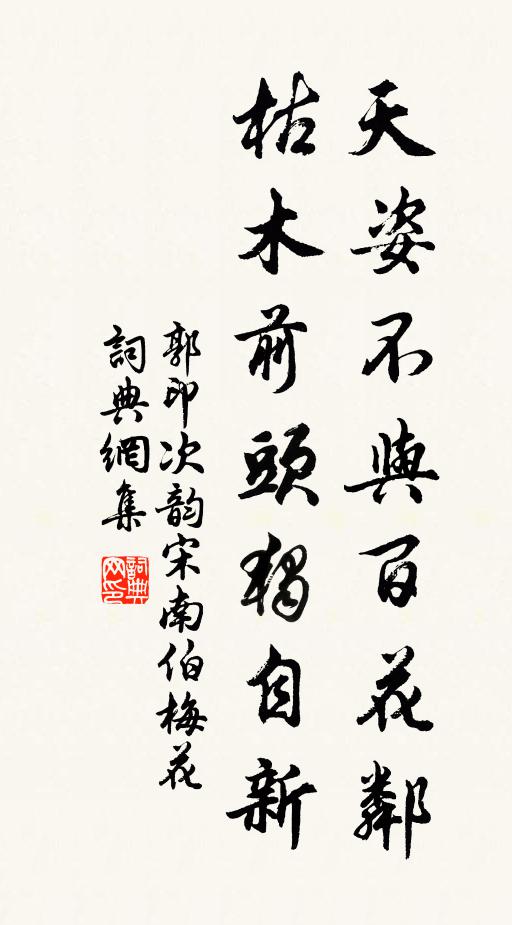 天姿不與百花鄰
枯木前頭獨自新
郭印次韵宋南伯梅花
詞典網集
詞典网印